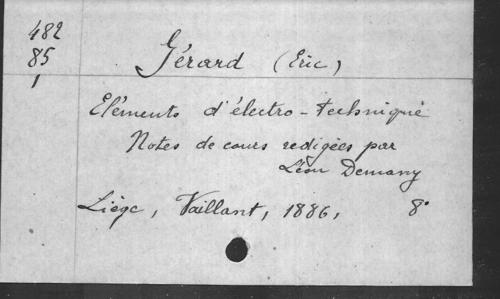 482
85
1
Gérard (Eric)
Eléments d'électro-technique
Notes de cours redigées par
Léon Demany
Liège, Vaillant, 1886, 8°